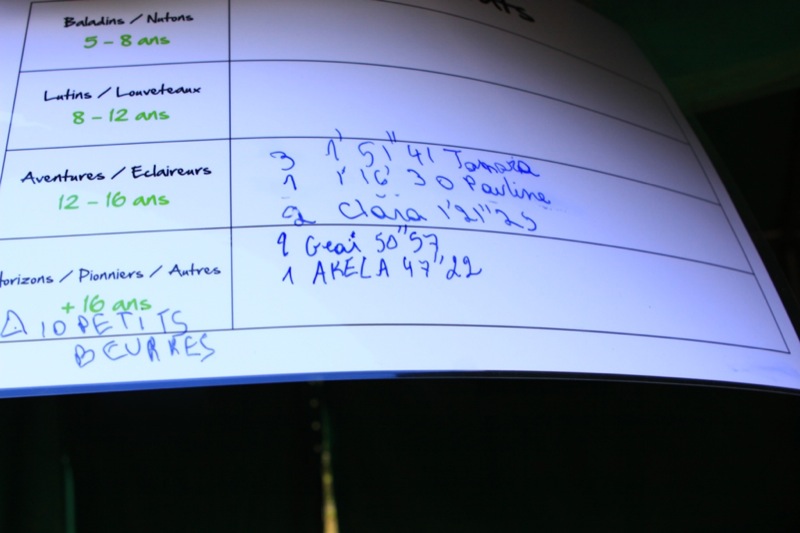 Baladins / Nutons
5 - 8 ans
Lutins / Louveteaux
8 - 12 ans
Aventures / Eclaireurs
12 - 16 ans
3 1' 51" 41 Tamara
1 1' 16' 30 Pauline
2 Clara 1'21"25
Horizons / Pionniers / Autres
+ 16 ans
2 Geai 50"57
1 AKELA 47"22
10 PETITS
BEURRES